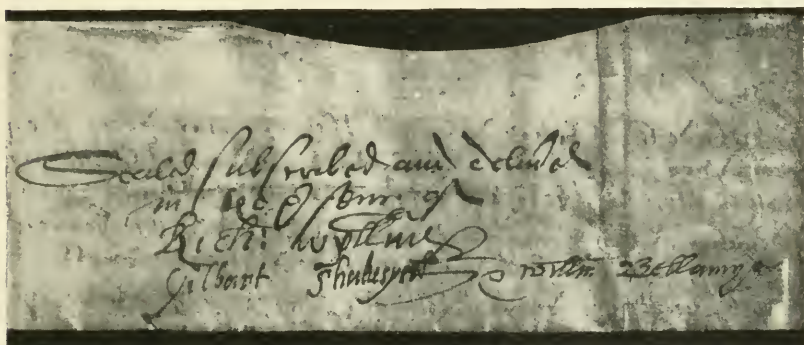 Sealed subscribed and delivered
in the presence of
Rich: Wyllmes
Gilbart Shakesper Willm Bellamy